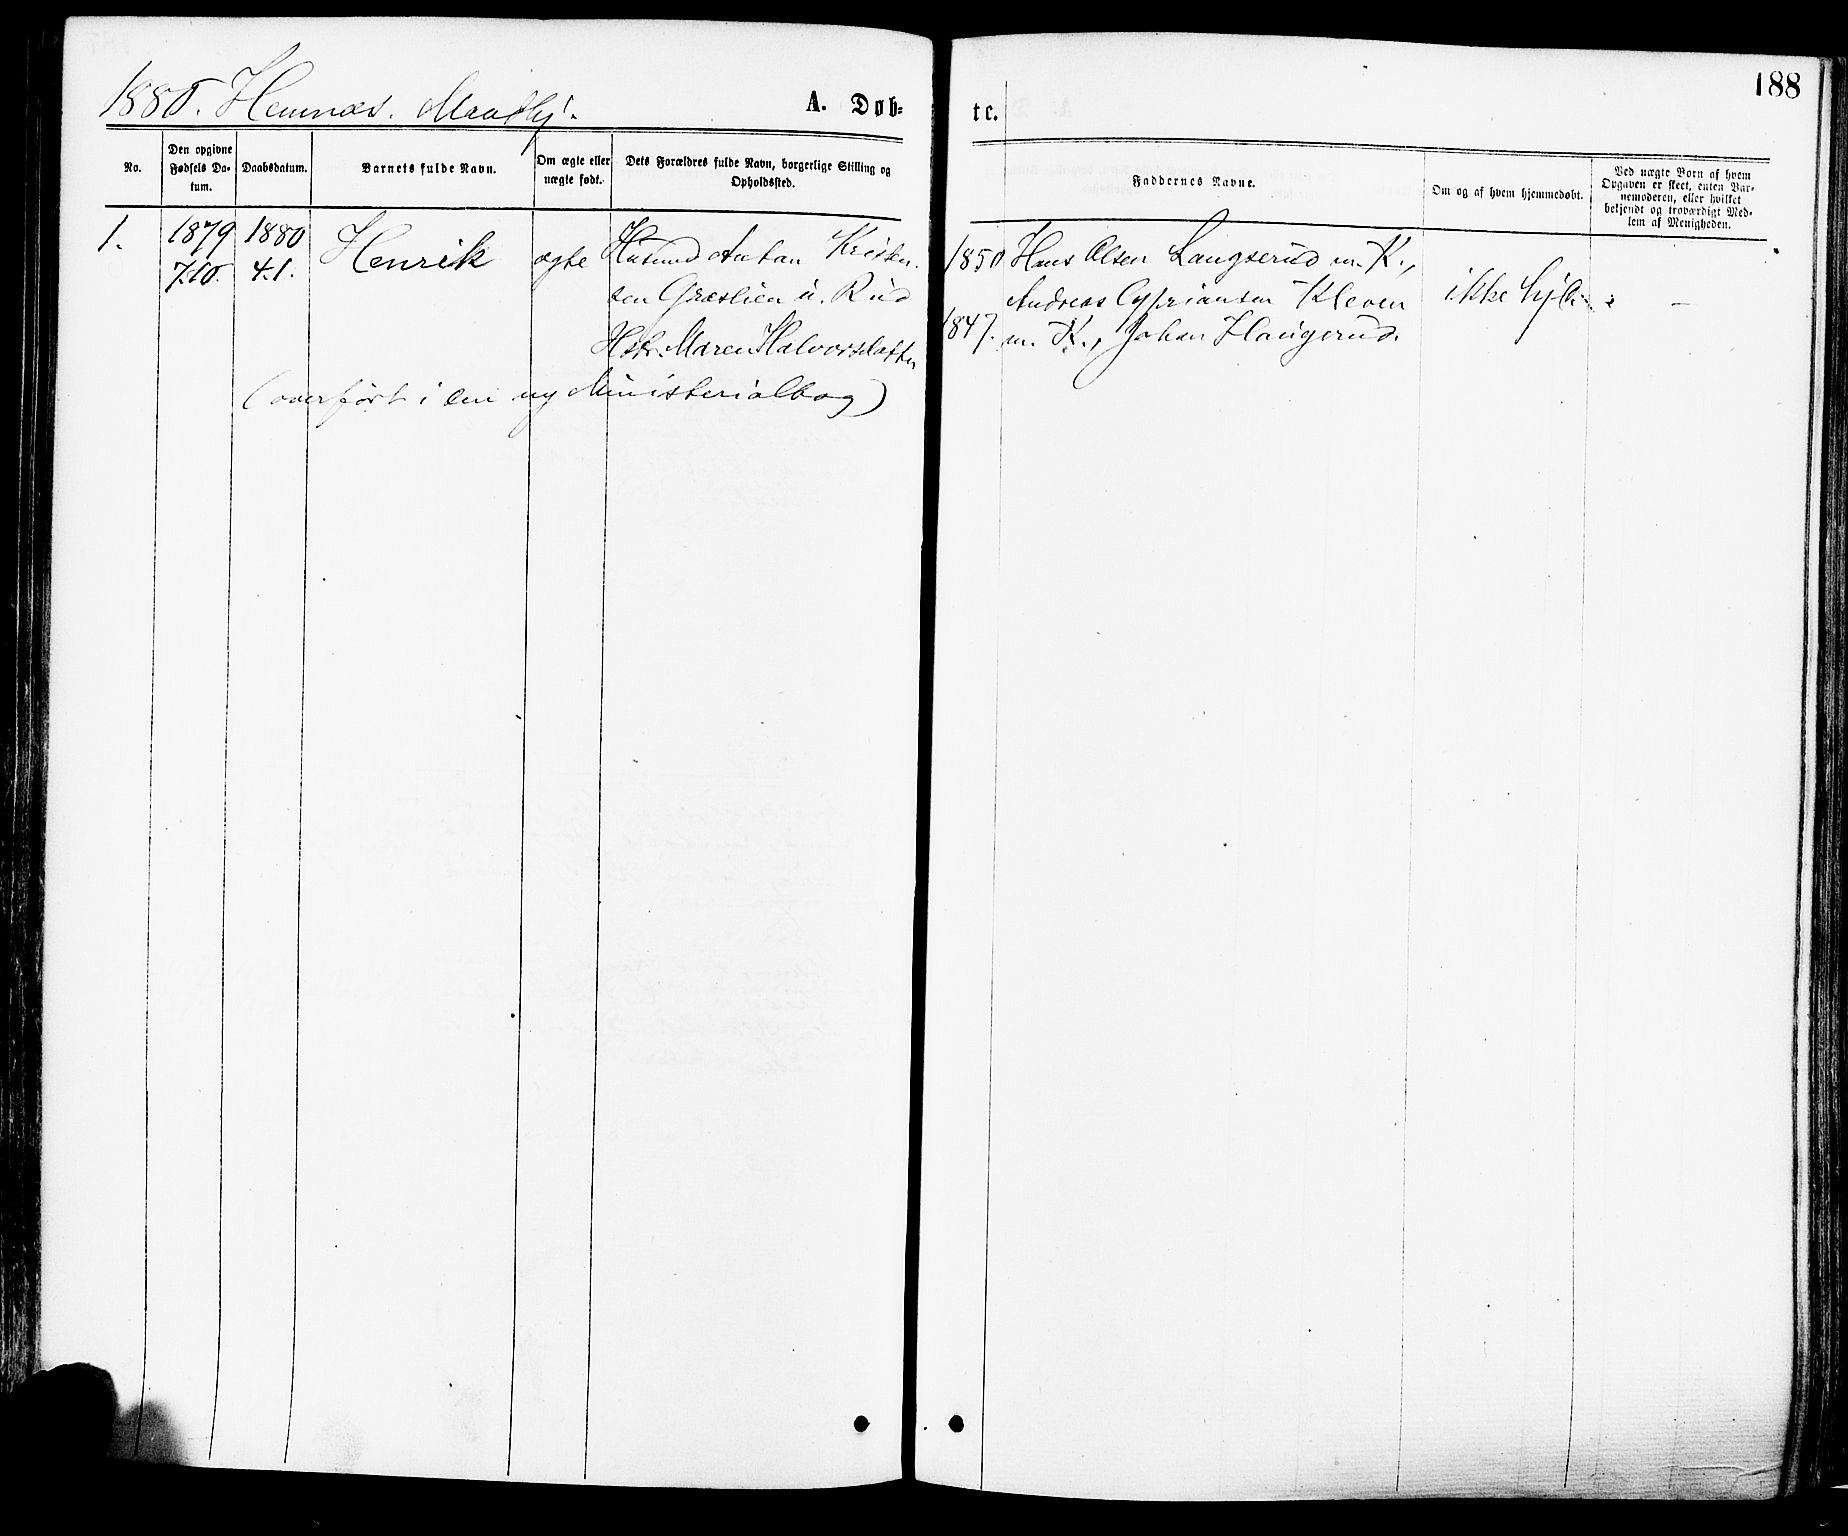 188
1880. Hemnæs. Mandkj.
A. Døb-
te.
No.
Den opgivne
Fødsels Da-
tum.
Daabsdatum.
Barnets fulde Navn.
Om ægte eller
uægte født.
Dets Forældres fulde Navn, borgerlige Stilling og
Opholdssted.
Faddernes Navne.
Om og af hvem hjemmedøbt.
Ved uægte Børn af hvem
Opgaven er skeet, enten Bar-
nemoderen, eller hvilket
bekjendt og troværdigt Med-
lem af Menigheden.
1.
1879
7.10.
1880
4.1.
Henrik
ægte
Husmd Anton Kristen-
sen Græslien u. Rud
Hstr. Maren Halvorsdatter
1850
1847.
Hans Olsen Langserud m. K.,
Andreas Cypriansen Kleven
m. K., Johan Haugerud.
ikke hj.
—
(overført i den ny Ministerialbog)